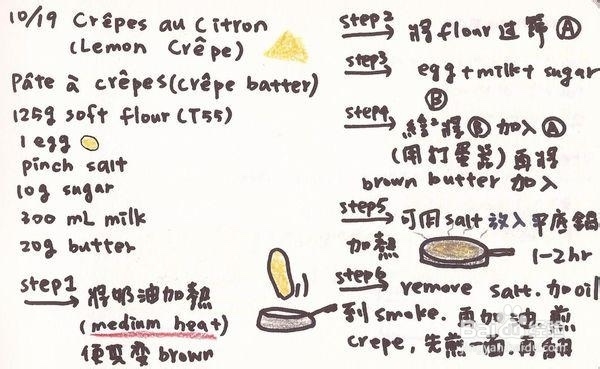 10/19 Crêpes au Citron
(Lemon Crêpe)
Pâte à crêpes (crêpe batter)
125g soft flour (T55)
1 egg
pinch salt
10g sugar
300 mL milk
20g butter
step1
將奶油加熱
(medium heat)
使其变 brown
step2
將 flour 过篩 Ⓐ
step3
egg + milk + sugar
Ⓑ
step4
將 Ⓑ 加入 Ⓐ
(用打蛋器) 再將
brown butter 加入
step5
可用 salt 放入 平底鍋
加熱
1-2hr
step6
remove salt. 加 oil
到 smoke. 再加 煎
crepe, 先煎一面. 再翻